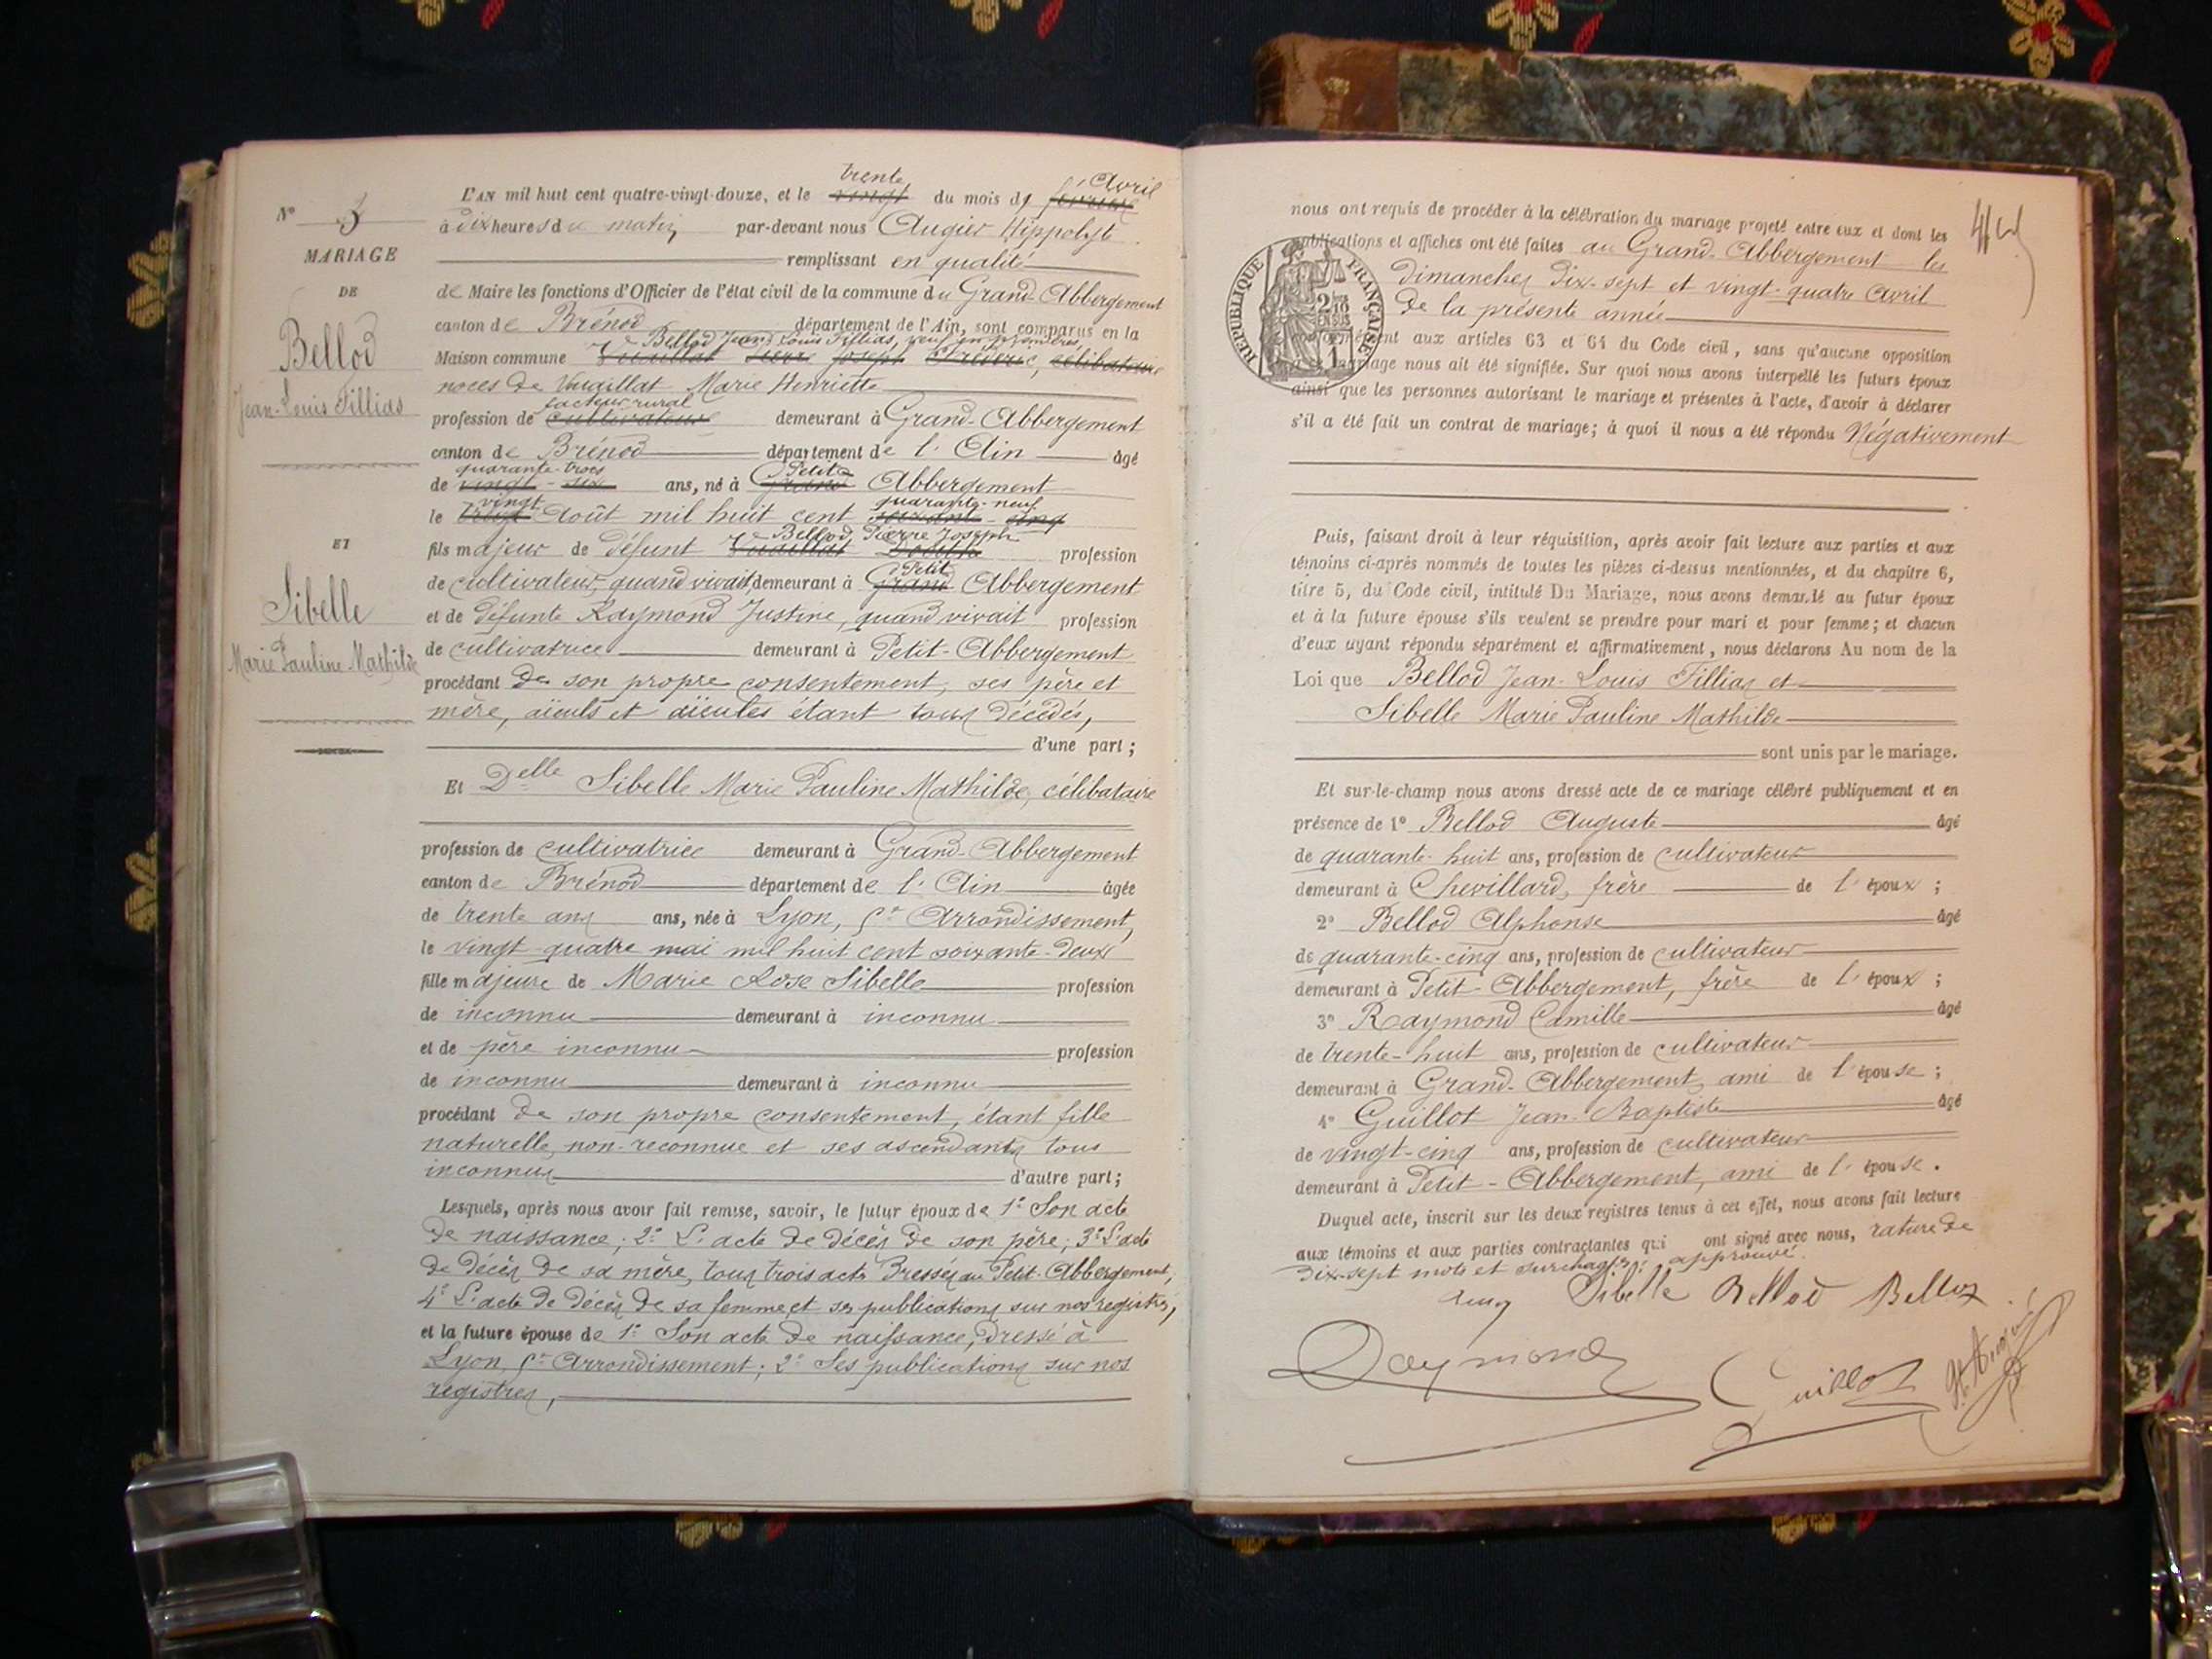 N° 3
MARIAGE
DE
Bellod
Jean-Louis Fillias
ET
Sibelle
Marie Pauline Mathilde
trente Avril
L'AN mil huit cent quatre-vingt-douze, et le vingt du mois de février
à dix heures du matin par-devant nous Augier Hippolyte
remplissant en qualité
de Maire les fonctions d'Officier de l'état civil de la commune du Grand-Abbergement
canton de Brénod département de l'Ain, sont comparus en la
Bellod Jean-Louis Fillias, veuf en premières
Maison commune Vuaillat Pierre Joseph célibataire
noces de Vuaillat Marie Henriette
facteur rural
profession de cultivateur demeurant à Grand-Abbergement
canton de Brénod département de l'Ain âgé
quarante-trois Petit
de vingt-six ans, né à Grand Abbergement
vingt quarante-neuf
le Août mil huit cent soixante-cinq
Bellod, Pierre Joseph
fils majeur de défunt Vuaillat profession
Petit
de cultivateur, quand vivait, demeurant à Grand-Abbergement
et de défunte Raymond Justine, quand vivait profession
de cultivatrice demeurant à Petit-Abbergement
procédant de son propre consentement, ses père et
mère, aïeuls et aïeules étant tous décédés,
d'une part ;
Et Delle Sibelle Marie Pauline Mathilde, célibataire
profession de cultivatrice demeurant à Grand-Abbergement
canton de Brénod département de l'Ain âgée
de trente ans ans, née à Lyon, Arrondissement,
le vingt-quatre mai mil huit cent soixante-deux
fille majeure de Marie Rose Sibelle profession
de inconnu demeurant à inconnu
et de père inconnu profession
de inconnu demeurant à inconnu
procédant de son propre consentement, étant fille
naturelle, non-reconnue et ses ascendants tous
inconnus d'autre part ;
Lesquels, après nous avoir fait remise, savoir, le futur époux de 1° Son acte
de naissance ; 2° L'acte de décès de son père ; 3° L'acte
de décès de sa mère, tous trois acts dressés au Petit-Abbergement,
4° L'acte de décès de sa femme et ses publications sur nos registres,
et la future épouse de 1° Son acte de naissance, dressé à
Lyon, Arrondissement ; 2° Ses publications sur nos
registres,
nous ont requis de procéder à la célébration du mariage projeté entre eux et dont les
publications et affiches ont été faites au Grand-Abbergement les
dimanches dix-sept et vingt-quatre Avril
de la présente année
conformément aux articles 63 et 64 du Code civil, sans qu'aucune opposition
mariage nous ait été signifiée. Sur quoi nous avons interpellé les futurs époux
ainsi que les personnes autorisant le mariage et présentes à l'acte, d'avoir à déclarer
s'il a été fait un contrat de mariage ; à quoi il nous a été répondu Négativement
RÉPUBLIQUE FRANÇAISE
2/10
EN SUS
1
Puis, faisant droit à leur réquisition, après avoir fait lecture aux parties et aux
témoins ci-après nommés de toutes les pièces ci-dessus mentionnées, et du chapitre 6,
titre 5, du Code civil, intitulé Du Mariage, nous avons demandé au futur époux
et à la future épouse s'ils veulent se prendre pour mari et pour femme ; et chacun
d'eux ayant répondu séparément et affirmativement, nous déclarons Au nom de la
Loi que Bellod Jean-Louis Fillias et
Sibelle Marie Pauline Mathilde
sont unis par le mariage.
Et sur-le-champ nous avons dressé acte de ce mariage célébré publiquement et en
présence de 1° Bellod Auguste âgé
de quarante-huit ans, profession de cultivateur
demeurant à Chevillard, frère de l'époux ;
2° Bellod Alphonse âgé
de quarante-cinq ans, profession de cultivateur
demeurant à Petit-Abbergement, frère de l'époux ;
3° Raymond Camille âgé
de trente-huit ans, profession de cultivateur
demeurant à Grand-Abbergement, ami de l'épouse ;
4° Guillot Jean-Baptiste âgé
de vingt-cinq ans, profession de cultivateur
demeurant à Petit-Abbergement, ami de l'épouse.
Duquel acte, inscrit sur les deux registres tenus à cet effet, nous avons fait lecture
aux témoins et aux parties contractantes qui ont signé avec nous, rature de
dix-sept mots et surcharges approuvé.
Sibelle Bellod Bellod
Raymond Guillot